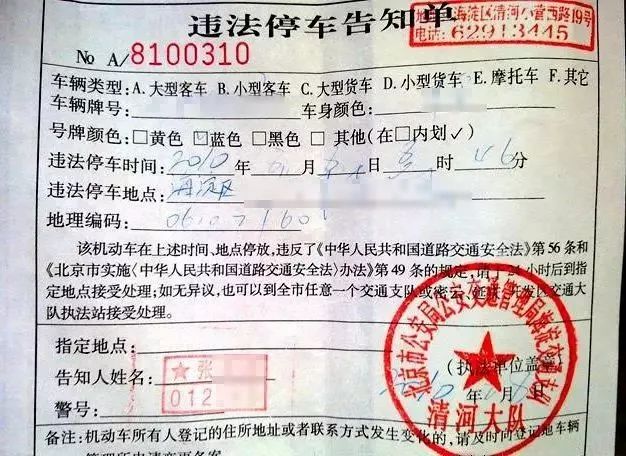 违法停车告知单
海淀区清河小营西路19号
电话：62913445
No A/8100310
车辆类型：A.大型客车 B.小型客车 C.大型货车 D.小型货车 E.摩托车 F.其它
车辆牌号： 车身颜色：
号牌颜色：□黄色 ☑蓝色 □黑色 □其他（在□内划✓）
违法停车时间：2010年 月 日 时46分
违法停车地点：海淀区
地理编码：
该机动车在上述时间、地点停放，违反了《中华人民共和国道路交通安全法》第56条和
《北京市实施〈中华人民共和国道路交通安全法〉办法》第49条的规定，请于24小时后到
指定地点接受处理；如无异议，也可以到全市任意一个交通支队或密云、延庆、开发区交通大
队执法站接受处理。
指定地点：
告知人姓名：★张
警号：012
（执法单位盖章）
2010年 月 日
北京市公安局公安交通管理局海淀交通支队
清河大队
备注：机动车所有人登记的住所地址或者联系方式发生变化的，请及时向登记地车辆
管理所申请变更备案